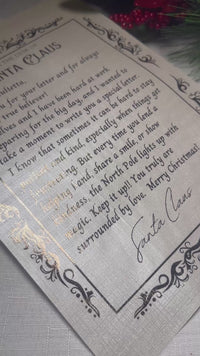 NTA CLAUS
for your letter and for always
true believer!
elves and I have been hard at work
eparing for the big day, and I wanted to
take a moment to write you a special letter.
I know that sometimes it can be hard to stay
and kind, especially when things get
But every time you lend a
hand, share a smile, or show
kindness, the North Pole lights up with
magic. Keep it up!! You truly are
surrounded by love. Merry Christmas!
Santa Claus